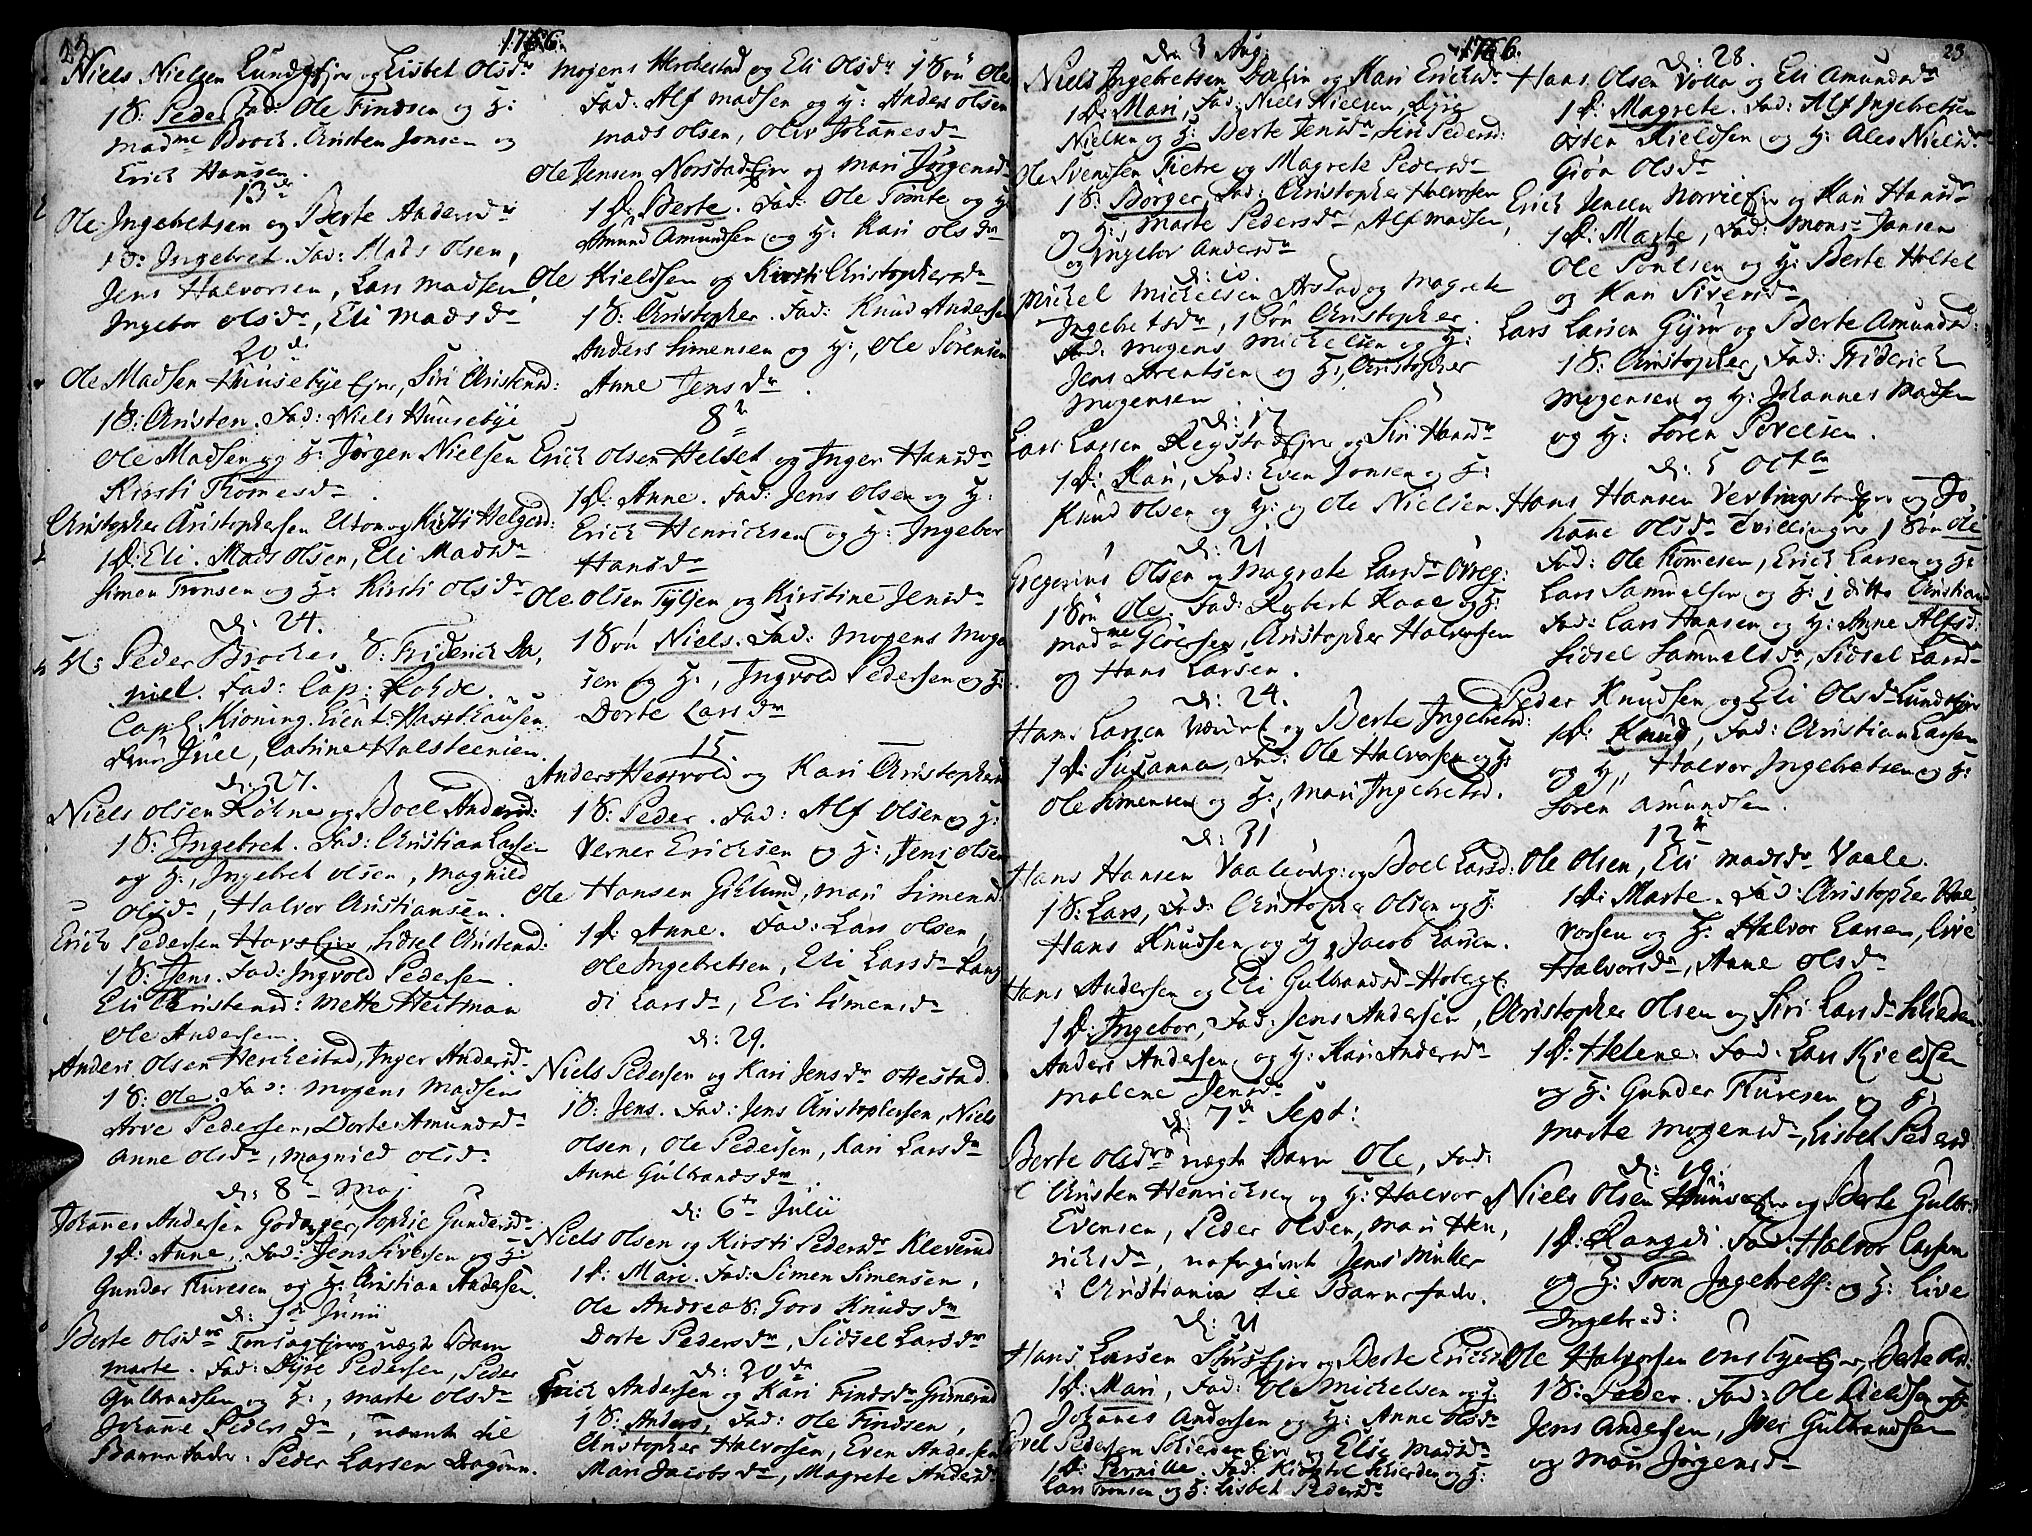 22
1766.
Niels Nielsen Lundsejer og Lisbet Olsdr
1 S: Peder Fad: Ole Findsen og H:
madme Broch. Christen Jonsen og
Erich Hansen.
13de
Ole Ingebretsen og Berte Andersdr
1 S: Ingebret. Fad: Mads Olsen,
Jens Halvorsen, Lars Madsen
Ingebor Olsdr, Eli Madsdr
20 d
Ole Madsen Huusebye Ejer, Siri Christensd:
1 S: Christen. Fad: Niels Huusebye
Ole Madsen og H: Jørgen Nielsen
Kirsti Tomesdr.
Christopher Christophersen Uton og Kirsti Helgesd:
1 D: Eli. Mads Olsen, Eli Madsdr
Simen Tronsen og H: Kirsti Olsdr
d: 24.
H: Peder Broches S: Friderich Da,
niel. Fad: Cap: Rohde.
Capt. Kioning, Lieut: Hasthausen
Fru Juel, Catrine Halsteensen.
d: 27.
Niels Olsen Røhne og Boel Andersd:
1 S: Ingebret. Fad: Christian Larsen
og H:, Ingebret Olsen, Magnild
Olsdr, Halvor Christiansen.
Erich Pedersen Horsejer, Sidsel Christensd:
1 S: Jens. Fad: Ingvold Pedersen.
Eli Christensd: Mette Heitman
Ole Andersen.
Anders Olsen Herchestad, Inger Andersdr
1 S: Ole. Fad: Mogens Madsen
Arve Pedersen, Dorte Amundsdr
Anne Olsdr, Magnild Olsdr
d: 8de Maj
Johannes Andersen Godager, Sophie Gundersdr
1 D: Anne. Fad: Jens Siversen og H:
Gunder Turesen og H: Christian Andersen.
d: 1de Junii
Berte Olsdrs Tonsagejers uægte Barn
Marte. Fad: Dyre Pedersen, Peder
Gulbrandsen og H:, Marte Olsdr
Johanne Pedersdr, nævnte til
Barnefader: Peder Larsen Dragoun.
Mogens Herchestad og Eli Olsdr 1 Søn Ole
Fad: Alf Madsen og H: Anders Olsen
Mads Olsen, Oliv Johannesdr
Ole Jensen Norstadejer og Mari Jørgensd
1 D: Berte. Fad: Ole Tomte og H:
Amund Amundsen og H: Kari Olsdr
Ole Kieldsen og Kirsti Christophersdr
1 S: Christopher. Fad: Knud Andersen
Anders Simensen og H:, Ole Sørensen
Anne Jensdr.
8de
Erich Olsen Helset og Inger Hansdr
1 D: Anne. Fad: Jens Olsen og H:
Erich Henrichsen og H: Ingebor
Hansdr
Ole Olsen Tyljen og Kirstine Jensdr
1 Søn Niels. Fad: Mogens Moge
sen og H:, Ingvold Pedersen og H:
Dorte Larsdr
15.
Anders Hersvold og Kari Christophersd
1 S: Peder. Fad: Alf Olsen og H:
Verner Erichsen og H: Jens Olsen
Ole Hansen Giklund, Mari Simensd
1 D: Anne. Fad: Lars Olsen,
Ole Ingebretsen, Eli Larsdr Rang
di Larsdr, Eli Simensdr
d: 29.
Niels Pedersen og Kari Jensdr Ottestad
1 S: Jens. Fad: Jens Christophersen, Niels
Olsen, Ole Pedersen, Kari Larsdr
Anne Gulbrandsdr.
d: 6te Julii
Niels Olsen og Kirsti Pedersdr Kleverud
1 D: Mari. Fad: Simen Simensen,
Ole Andreas. Goro Knudsdr
Dorte Pedersdr, Sidsel Larsdr
d: 20de
Erich Andersen og Kari Findsdr Grimerud
1 S: Anders, Fad: Ole Findsen,
Christopher Halvorsen, Even Andersen
Mari Jacobsdr, Magrete Andersdr
1766.
23
den 3 Aug:
Niels Ingebretsen Dalin og Kari Erichsdr
1 D: Mari, Fad: Niels Nielsen, Dyre
Nielsen og H: Berte Jensdr, Siri Pedersd:
Ole Svendsen Tietre og Magrete Pedersdr
1 S: Børger, Fad: Christopher Halvorsen
og H:, Marte Pedersdr, Alf Madsen,
og Ingebor Andersdr
d: 10
Michel Michelsen Arstad og Magrete
Ingebretsdr, 1 Søn Christopher.
Fad: Mogens Michelsen og H:
Jens Arentsen og H:, Christopher
Mogensen
d: 17
Lars Larsen Regstadejer og Siri Hansdr
1 D: Kari, Fad: Even Jonsen og H:
Knud Olsen og H: og Ole Nielsen.
d: 21
Gregerius Olsen og Magrete Larsdr Ovreg:
1 Søn Ole. Fad: Robert Kaae og H:
Madme Gløersen, Christopher Halvorsen
og Hans Larsen.
d: 24.
Hans Larsen Værset og Berte Ingebretsd:
1 D: Susanna, Fad: Ole Halvorsen og H:
Ole Simensen og H:, Mari Ingebretsd.
d: 31
Hans Hansen Vaaleeje: og Boel Larsd:
1 S: Lars, Fad: Christopher Olsen og H:
Hans Knudsen og H, Jacob Larsen.
Hans Andersen og Eli Gulbrandsd Hobege.
1 D: Ingebor, Fad: Jens Andersen,
Anders Andersen og H: Kari Andersdr
Malene Jensdr
d: 7de Sept:
Berte Olsdrs uægte Barn Ole, Fad:
Christen Henrichsen og H: Halvor
Evensen, Peder Olsen, Mari Hen,
richsdr, udgivet Jens Müller
i Christiania til Barnefader.
d: 21
Hans Larsen Sthusejer og Berte Erichsd
1 D: Mari, Fad: Ole Michelsen og H:
Johannes Andersen og H: Anne Olsdr
Povel Pedersen Schierdenejer og Elsse Madsdr
1 D: Pernille. Fad: Kiøstel Schierden og H:
Lars Tronsen og H: Lisbet Pedersdr
d: 28.
Hans Olsen Volla og Eli Amundsdr
1 D: Magrete. Fad: Alf Ingebretsen
Østen Kieldsen og H: Ales Nielsdr
Giøa Olsdr
Erich Jensen Norvieejer og Kari Hansdr
1 D: Marte, Fad: Mons Jansen
Ole Poulsen og H: Berte Holset
og Kari Siversdr
Lars Larsen Gijrer og Berte Amundsd:
1 S: Christopher, Fad: Friderich
Mogensen og H: Johannes Madsen
og H: Søren Povelsen.
d: 5 Octbr
Hans Hansen Vestringstadejer og Jo,
hanne Olsdr Tvillinger 1 Søn Ole
Fad: Ole Tomesen, Erich Larsen og H:
Lars Samuelsen og H: 1 ditto Christian
Fad: Lars Hansen og H: Anne Alfsd:
Sidsel Samuelsdr, Sidsel Larsd
Peder Knudsen og Eli Olsd Lundsejer
1 D: Knud, Fad: Christian Larsen
og H:, Halvor Ingebretsen og H:
Søren Amundsen.
12te
Ole Olsen, Eli Madsdr Vaale.
1 D: Marte. Fad: Christopher Hal
vorsen og H: Halvor Larsen, Live
Halvorsdr, Anne Olsdr
Christopher Olsen og Siri Larsdr Schieden
1 D: Helene. Fad. Lars Kieldsen
og H: Gunder Turesen og H:
Marte Mogensdr, Lisbet Pedersd
d: 19.
Niels Olsen Huusejer og Berte Gulbr:
1 D: Rangdi. Fad: Halvor Larsen
og H: Tron Ingebrets: og H: Live
Ingebrsd:
Ole Halvorsen Onsbyeejer, Berte Olsd:
1 S: Peder. Fad: Ole Kieldsen og H:
Jens Andersen, Iver Gulbrandsen
og Mari Jørgensdr